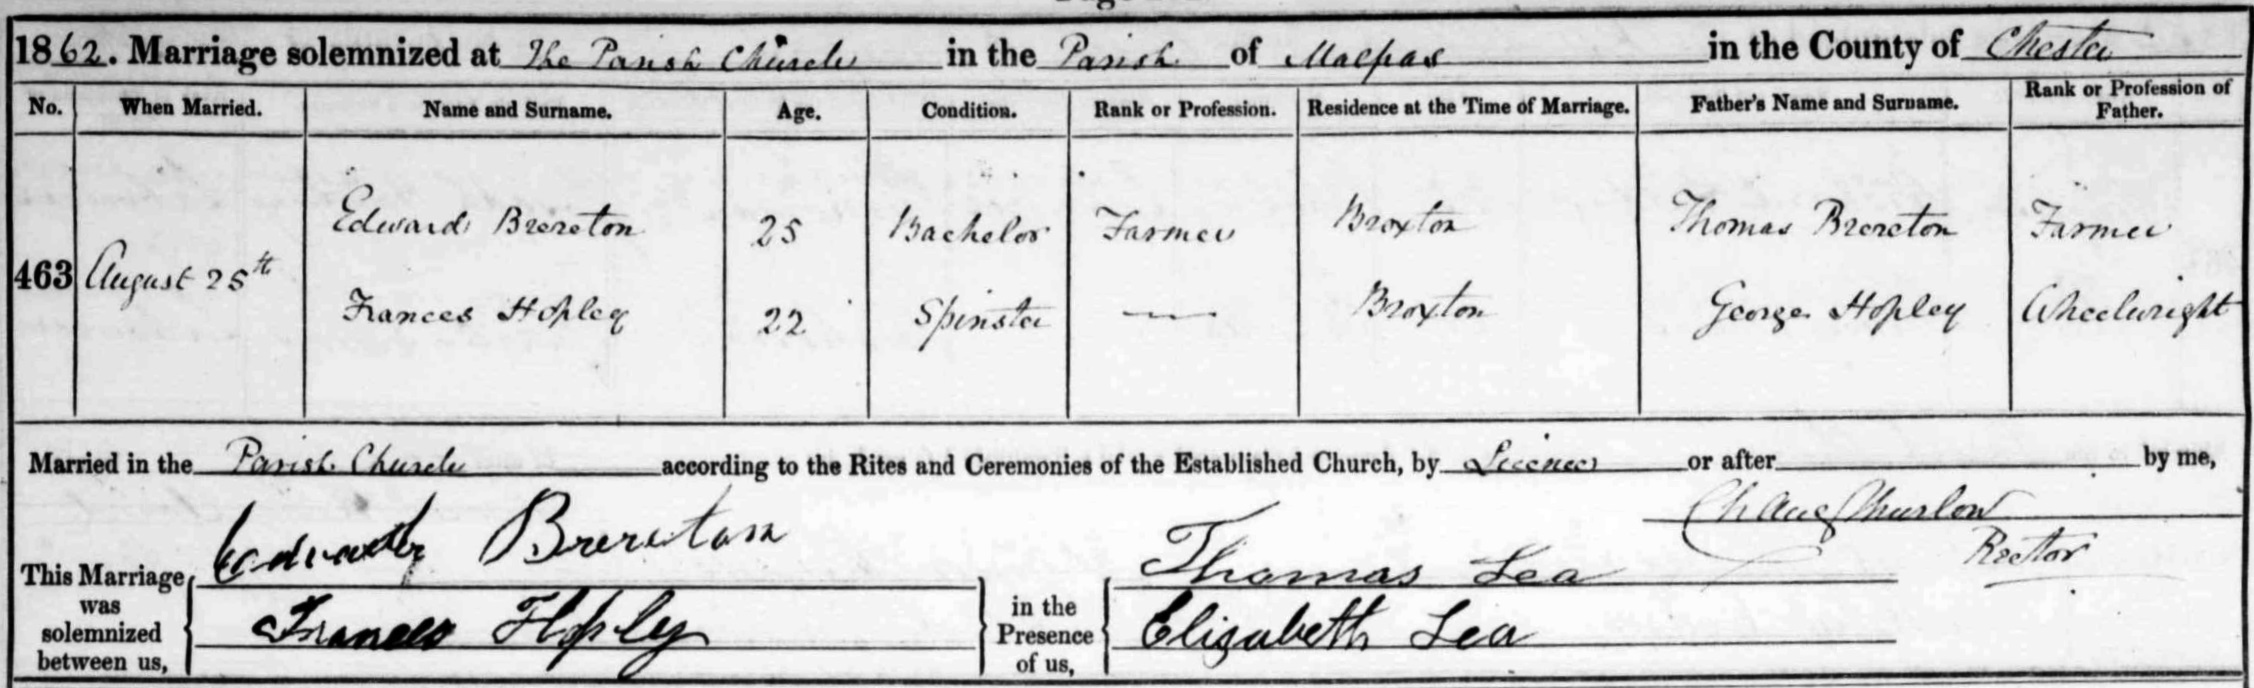 1862. Marriage solemnized at The Parish Church in the Parish of Malpas in the County of Chester
No. When Married. Name and Surname. Age. Condition. Rank or Profession. Residence at the Time of Marriage. Father's Name and Surname. Rank or Profession of Father.
Edward Brereton 25 Bachelor Farmer Broxton Thomas Brereton Farmer
463 August 25th
Frances Hopley 22 Spinster — Broxton George Hopley Wheelwright
Married in the Parish Church according to the Rites and Ceremonies of the Established Church, by Licence or after by me,
Thurlow
Rector
This Marriage was solemnized between us, Edward Brereton in the Presence of us, Thomas Lea
Frances Hopley Elizabeth Lea